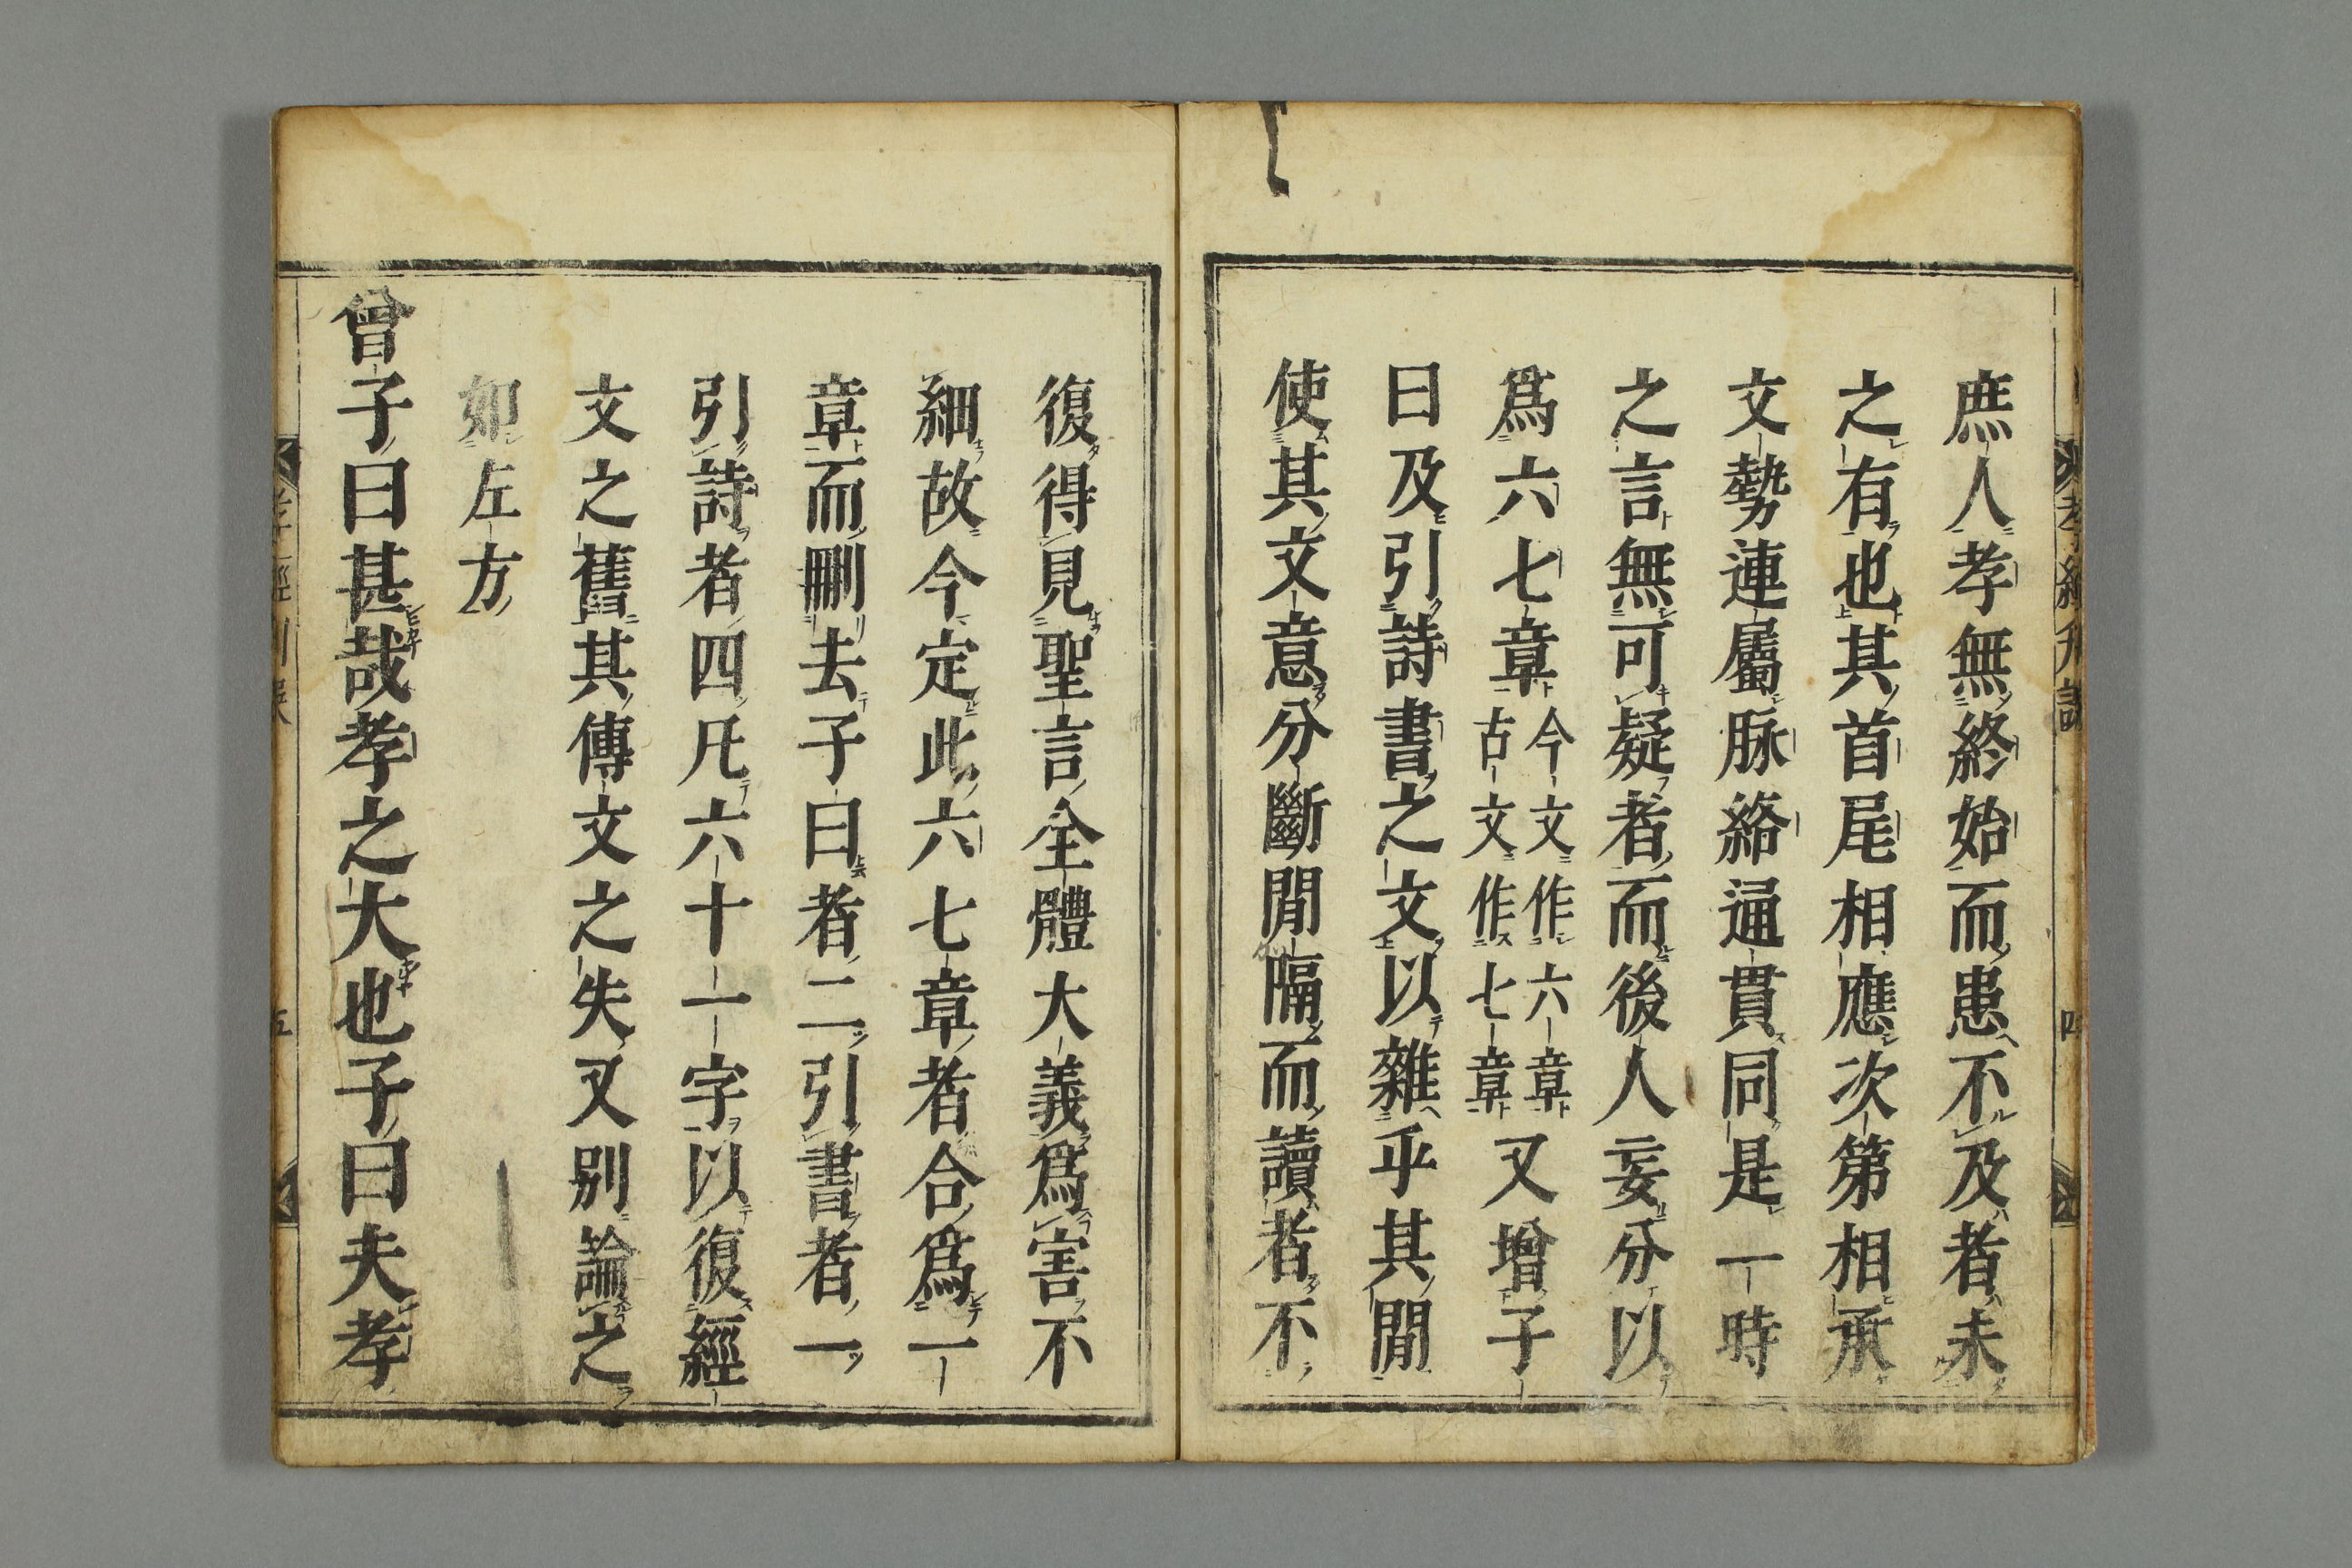 庶人孝無終始而患不及者未
之有也其首尾相應次第相承
文勢連屬脉絡通貫同是一時
之言無可疑者而後人妄分以
爲六七章今文作六章古文作七章又增子
曰及引詩書之文以雜乎其閒
使其文意分斷閒隔而讀者不
復得見聖言全體大義爲害不
細故今定此六七章者合爲一
章而刪去子曰者二引書者一
引詩者四凡六十一字以復經
文之舊其傳文之失又别論之
如左方
曾子曰甚哉孝之大也子曰夫孝